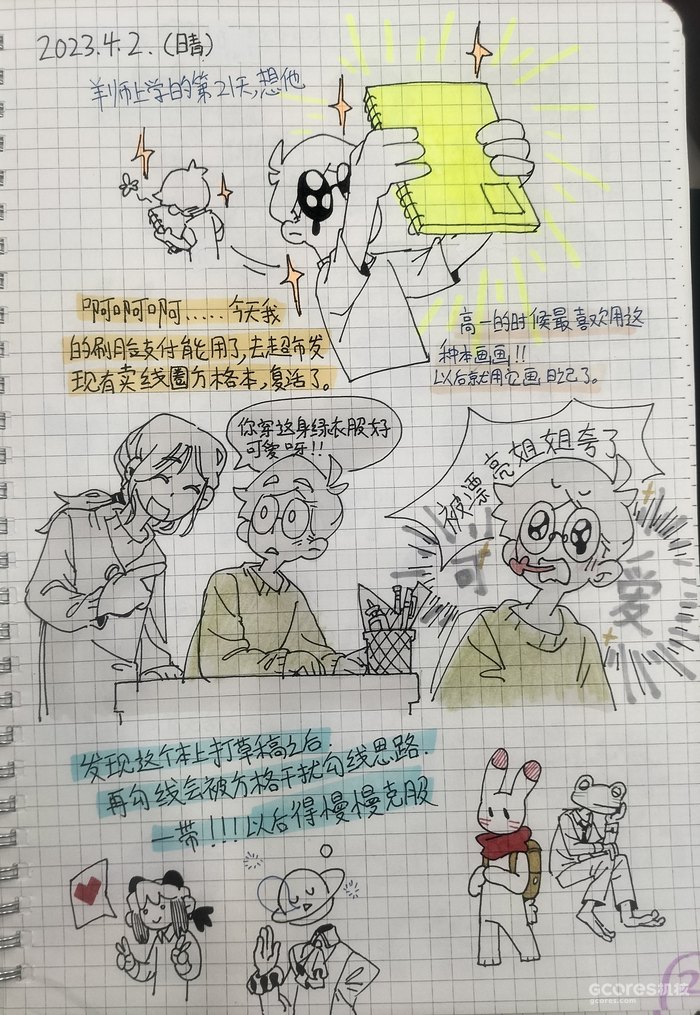 2023.4.2.(日晴)
羊师上学的第21天,想他
啊啊啊啊......今天我
的刷脸支付能用了,去超市发
现有卖线圈方格本,复活了。
高一的时候最喜欢用这
种本画画!!
以后就用它画日记了。
你穿这身绿衣服好
可爱呀!!
被漂亮姐姐夸了
可
爱
发现这个本上打草稿之后
再勾线会被方格干扰勾线思路.
一带!!!!以后得慢慢克服
GCORES机核
gcores.com
2